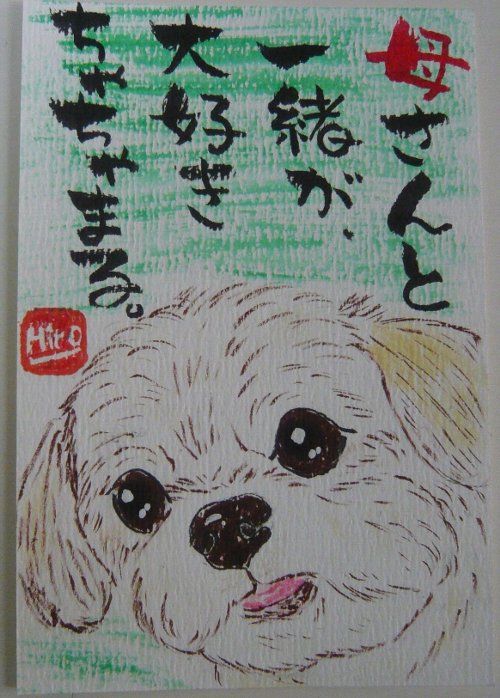 母さんと
一緒が、
大好き
ちゃちゃまる。
Hiro